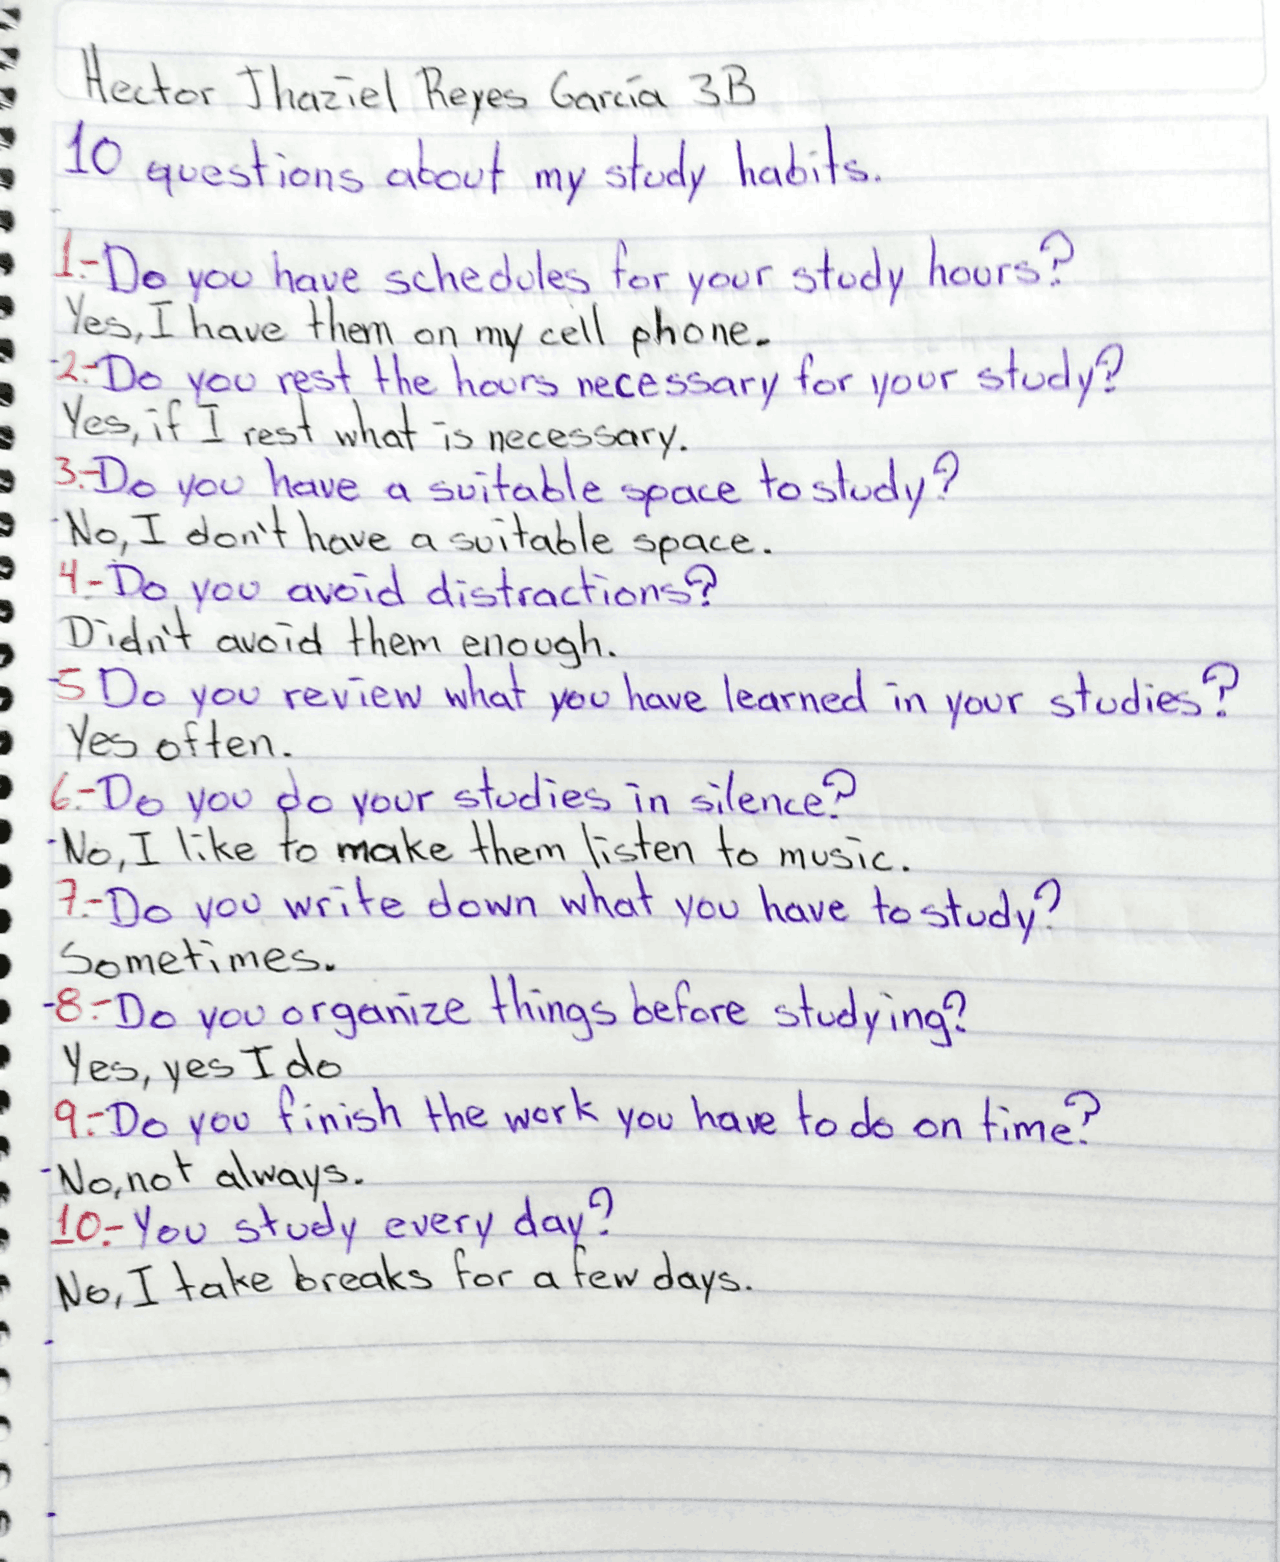 Hector Jhaziel Reyes García 3B
10 questions about my study habits.
1.-Do you have schedules for your study hours?
Yes, I have them on my cell phone.
2.-Do you rest the hours necessary for your study?
Yes, if I rest what is necessary.
3.-Do you have a suitable space to study?
No, I don't have a suitable space.
4.-Do you avoid distractions?
Didn't avoid them enough.
5 Do you review what you have learned in your studies?
Yes often.
6.-Do you do your studies in silence?
No, I like to make them listen to music.
7.-Do you write down what you have to study?
Sometimes.
-8.-Do you organize things before studying?
Yes, yes I do
9.-Do you finish the work you have to do on time?
No, not always.
10.-You study every day?
No, I take breaks for a few days.